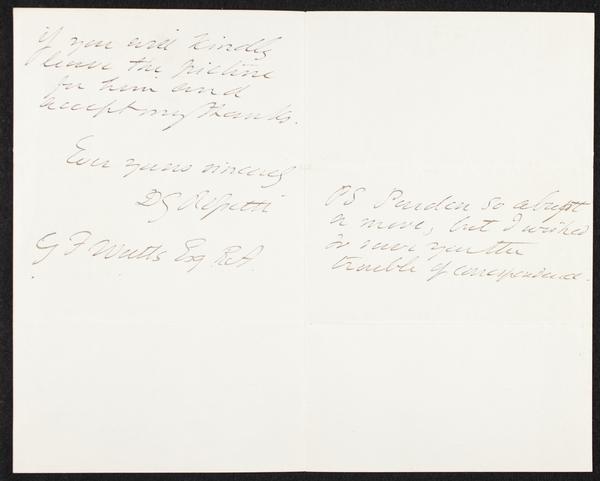 if you will kindly
leave the picture
for him and
accept my thanks.
Ever yours sincerely
DG Rossetti
G F Watts Esq RA.
PS Pardon so abrupt
a move, but I wished
to save you the
trouble of correspondence.